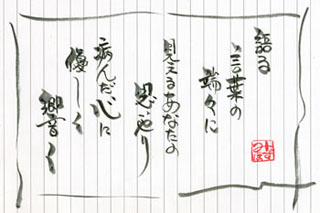 語る
言葉の
端々に
見えるあなたの
思いやり
病んだ心に
優しく
響く